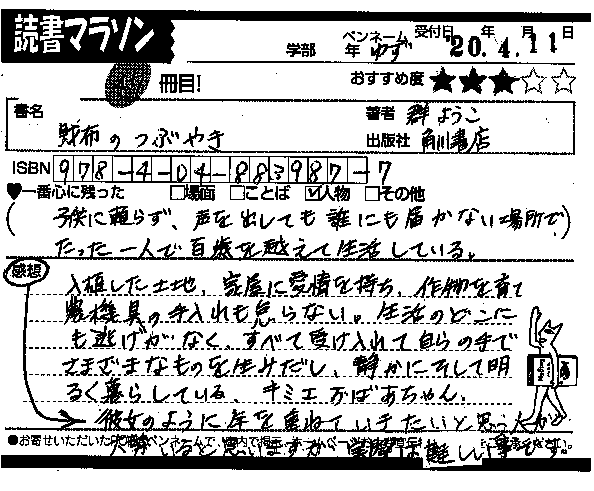 読書マラソン
学部 年 ペンネーム ゆず 受付日 '20年 4月 11日
冊目! おすすめ度 ★★★☆☆
書名 財布のつぶやき
著者 群ようこ
出版社 角川書店
ISBN 978-4-04-883987-7
♥一番心に残った □場面 □ことば ☑人物 □その他
(子供に頼らず、声を出しても誰にも届かない場所で、)
たった一人で百歳を越えて生活している。
感想
入植した土地、家屋に愛情を持ち、作物を育て
農機具の手入れも怠らない。生活のどこに
も逃げがなく、すべて受け入れて自らの手で
さまざまなものを生みだし、静かにそして明
るく暮らしている、キミエおばあちゃん。
→彼女のように年を重ねていきたいと思う人が
●お寄せいただいた
いると思いますが実際は難しい事です。